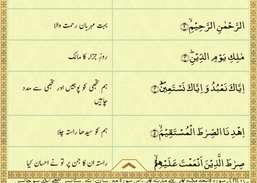 الرَّحْمٰنِ الرَّحِیْمِۙ بہت مہربان رحمت والا
مٰلِكِ یَوْمِ الدِّیْنِؕ روزِ جزا کا مالک
اِیَّاكَ نَعْبُدُ وَ اِیَّاكَ نَسْتَعِیْنُؕ ہم تجھی کو پوجیں اور تجھی سے مدد
چاہیں
اِهْدِنَا الصِّرَاطَ الْمُسْتَقِیْمَۙ ہم کو سیدھا راستہ چلا
صِرَاطَ الَّذِیْنَ اَنْعَمْتَ عَلَیْهِمْ راستہ ان کا جن پر تو نے احسان کیا